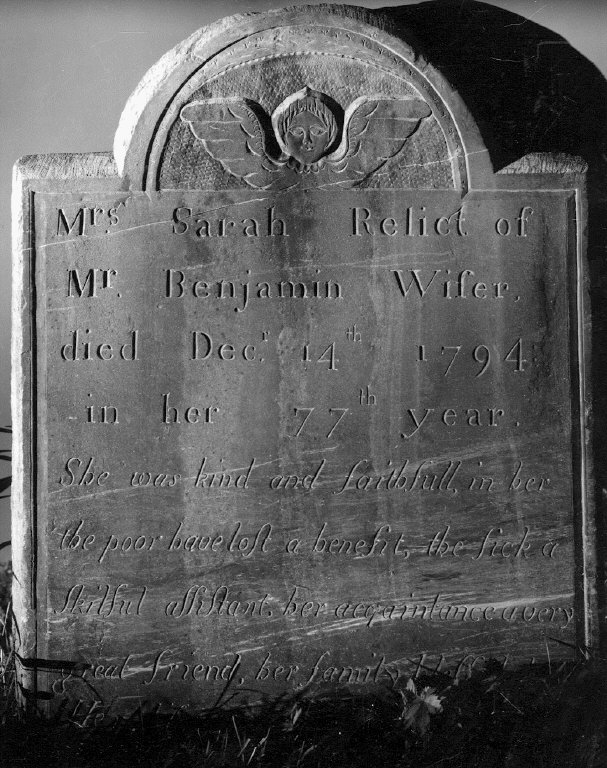 Mrs. Sarah Relict of
Mr. Benjamin Wiſer,
died Decr. 14th 1794
in her 77th year.
She was kind and faithfull, in her
the poor have loſt a benefit, the ſick a
ſkilful aſſiſtant, her acquaintance a very
great friend, her family